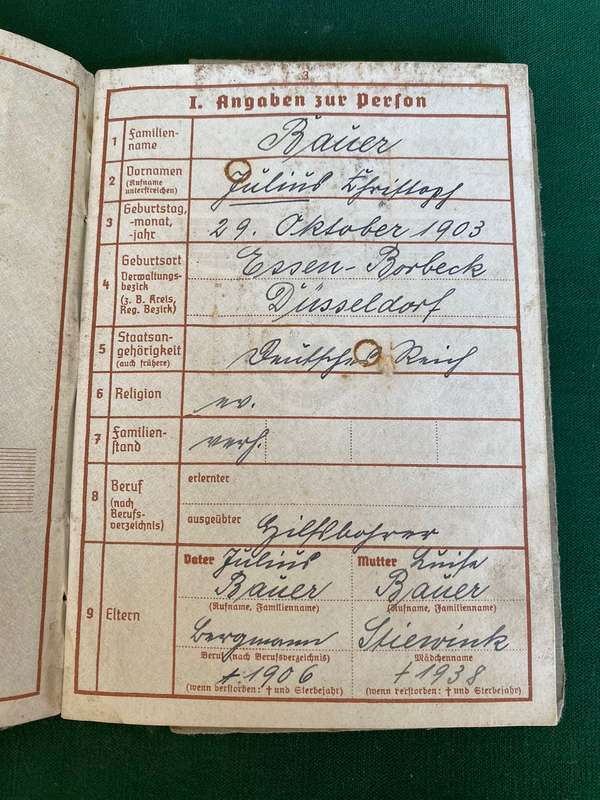 3
I. Angaben zur Person
1 Familien-
name
Bauer
2 Vornamen
(Rufname
unterstreichen)
Julius Christoph
3 Geburtstag,
-monat,
-jahr
29. Oktober 1903
4 Geburtsort
Verwaltungs-
bezirk
(z. B. Kreis,
Reg. Bezirk)
Essen-Borbeck
Düsseldorf
5 Staatsan-
gehörigkeit
(auch frühere)
Deutsches Reich
6 Religion
ev.
7 Familien-
stand
verh.
8 Beruf
(nach
Berufs-
verzeichnis)
erlernter
ausgeübter Hilfsbohrer
9 Eltern
Vater Julius
Bauer
(Rufname, Familienname)
Bergmann
Beruf (nach Berufsverzeichnis)
† 1906
(wenn verstorben: † und Sterbejahr)
Mutter Luise
Bauer
(Rufname, Familienname)
Stiewink
Mädchenname
† 1938
(wenn verstorben: † und Sterbejahr)